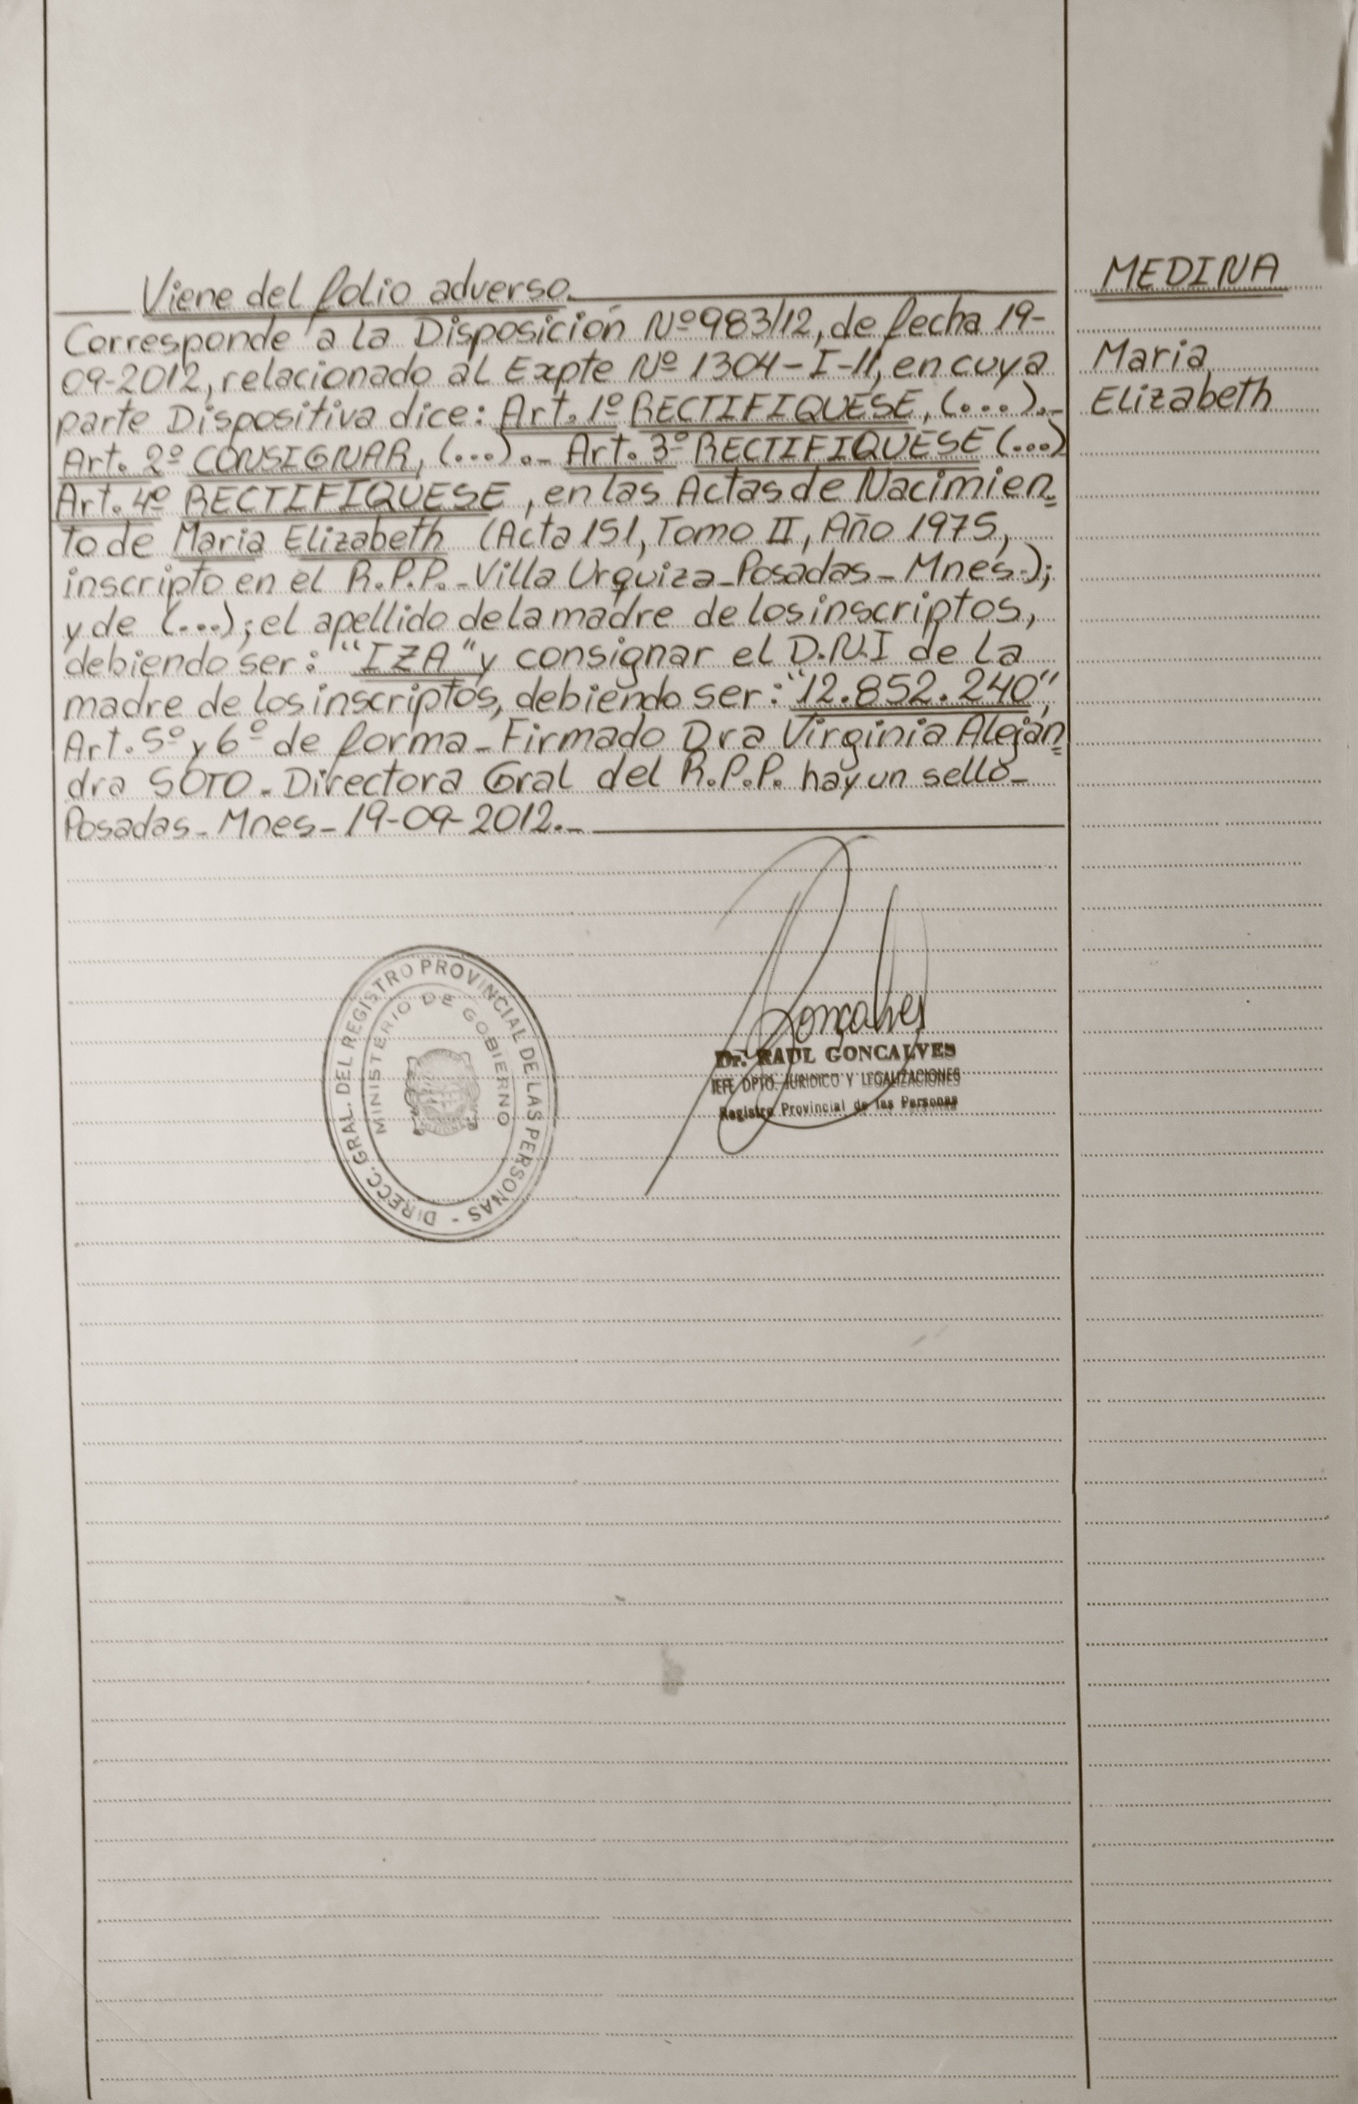 Viene del folio adverso.
MEDINA
Maria
Elizabeth
Corresponde a la Disposición Nº983/12, de fecha 19-
09-2012, relacionado al Expte Nº 1304-I-11, en cuya
parte Dispositiva dice: Art. 1º RECTIFIQUESE, (...).-
Art. 2º CONSIGNAR, (...).- Art. 3º RECTIFIQUESE (...)
Art. 4º RECTIFIQUESE, en las Actas de Nacimien=
to de Maria Elizabeth (Acta 151, Tomo II, Año 1975,
inscripto en el R.P.P.-Villa Urquiza-Posadas-Mnes.);
y de (...); el apellido de la madre de los inscriptos,
debiendo ser: "IZA" y consignar el D.N.I de La
madre de los inscriptos, debiendo ser: "12.852.240",
Art. 5º y 6º de forma-Firmado Dra Virginia Aleján=
dra SOTO-Directora Gral del R.P.P. hay un sello-
Posadas-Mnes-19-09-2012.-
DIRECC. GRAL. DEL REGISTRO PROVINCIAL DE LAS PERSONAS -
MINISTERIO DE GOBIERNO
Gonçalves
Dr. RAUL GONCALVES
JEFE DPTO. JURIDICO Y LEGALIZACIONES
Registro Provincial de las Personas